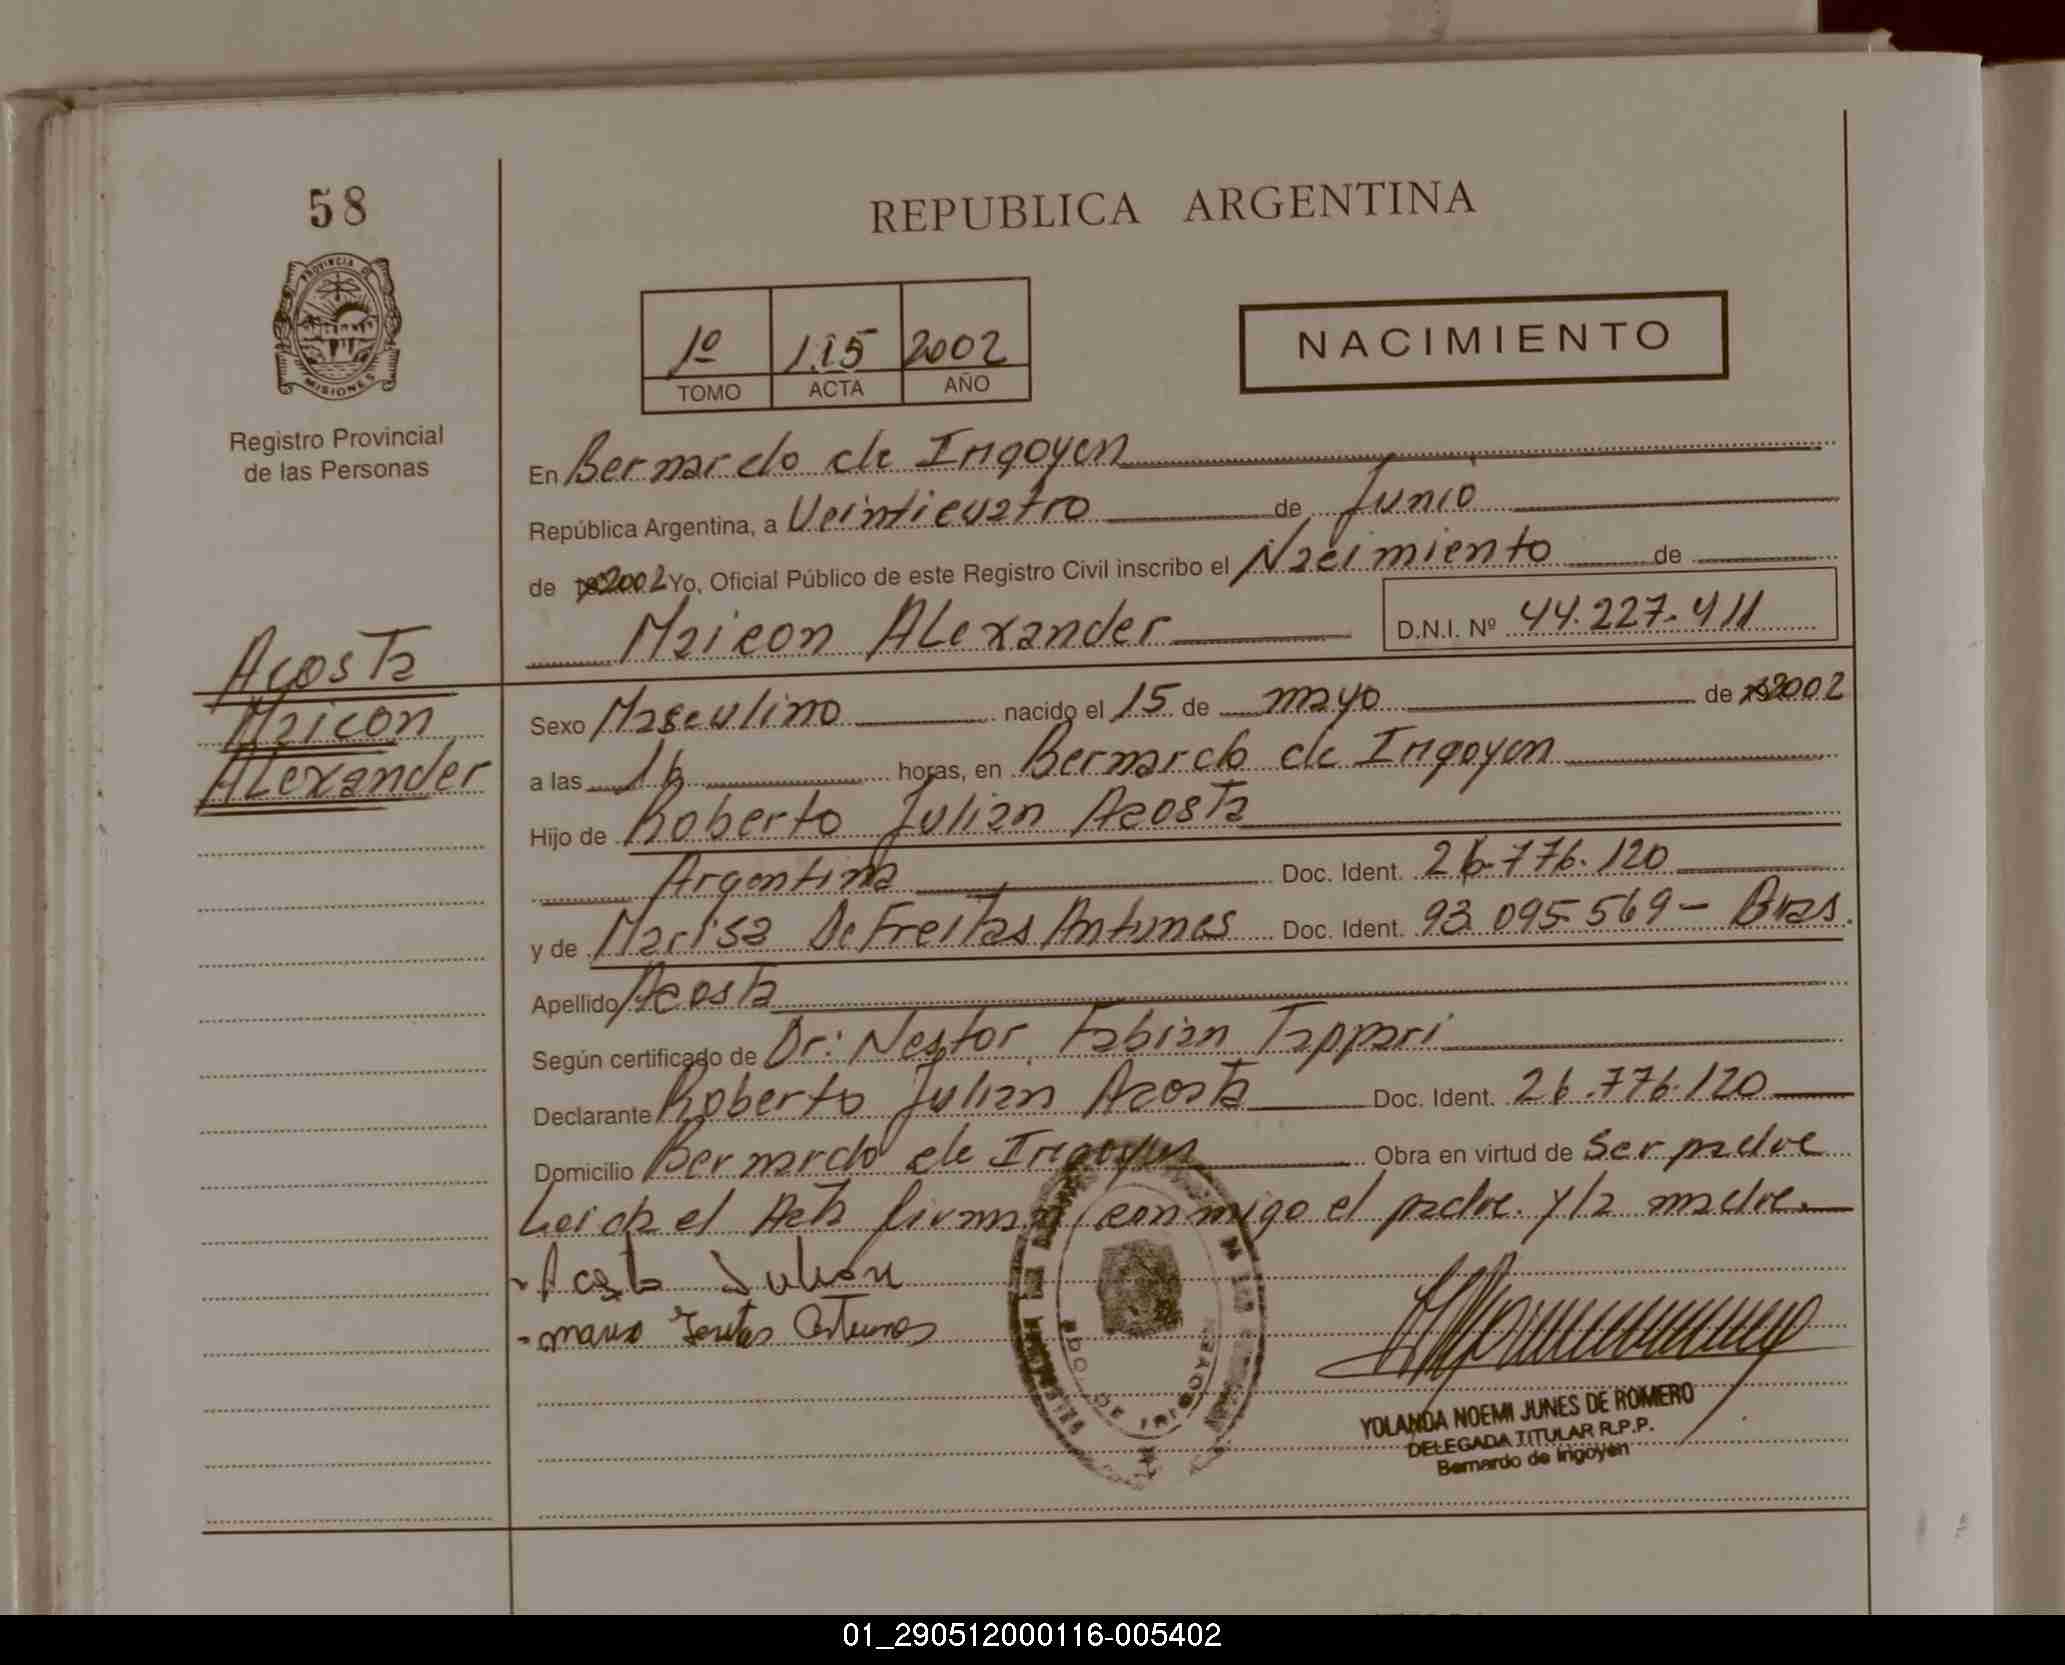 58
REPUBLICA ARGENTINA
PROVINCIA DE
MISIONES
Registro Provincial
de las Personas
1º 115 2002
TOMO ACTA AÑO
NACIMIENTO
En Bernardo de Irigoyen
República Argentina, a Veinticuatro de Junio
de 2002 Yo, Oficial Público de este Registro Civil inscribo el Nacimiento de
Maicon Alexander D.N.I. Nº 44.227.411
Acosta
Maicon
Alexander
Sexo Masculino nacido el 15 de mayo de 2002
a las 16 horas, en Bernardo de Irigoyen
Hijo de Roberto Julian Acosta
Argentina Doc. Ident. 26.776.120
y de Marisa De Freitas Antunes Doc. Ident. 93.095.569 - Bras.
Apellido Acosta
Según certificado de Dr: Nestor Fabian Tappari
Declarante Roberto Julian Acosta Doc. Ident. 26.776.120
Domicilio Bernardo de Irigoyen Obra en virtud de Ser padre
Leida el Acta firman conmigo el padre. y la madre.
- Acosta Julian
BDO. DE IRIGOYEN
YOLANDA NOEMI JUNES DE ROMERO
DELEGADA TITULAR R.P.P.
Bernardo de Irigoyen
01_290512000116-005402